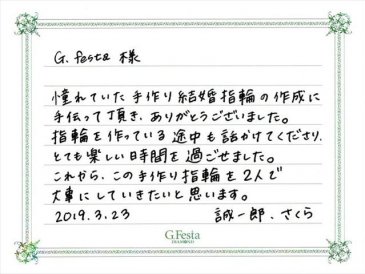 G.festa 様
憧れていた手作り結婚指輪の作成に
手伝って頂き、ありがとうございました。
指輪を作っている途中も話かけてくださり、
とても楽しい時間を過ごせました。
これから、この手作り指輪を2人で
大事にしていきたいと思います。
2019.3.23 誠一郎、さくら
G.Festa
DIAMOND